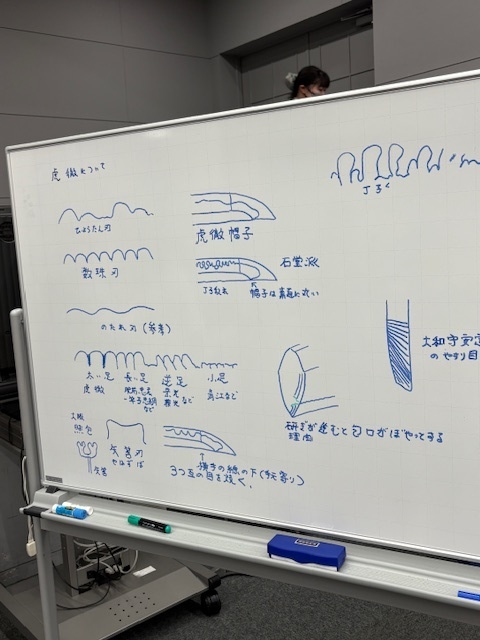 虎徹について
ひょうたん刃
数珠刃
のたれ刃(参考)
太い足
虎徹
長い足
肥前忠吉
逆足
小足
真江など
大阪
照包
矢筈
矢筈刃
やはずば
虎徹帽子
石堂派
丁子乱れ
帽子は素直に浅い
横手の線の下(手元寄り)
3つ互の目を焼く。
丁子
研ぎが進むと匂口がぼやってする
理由
大和守安定
のやすり目